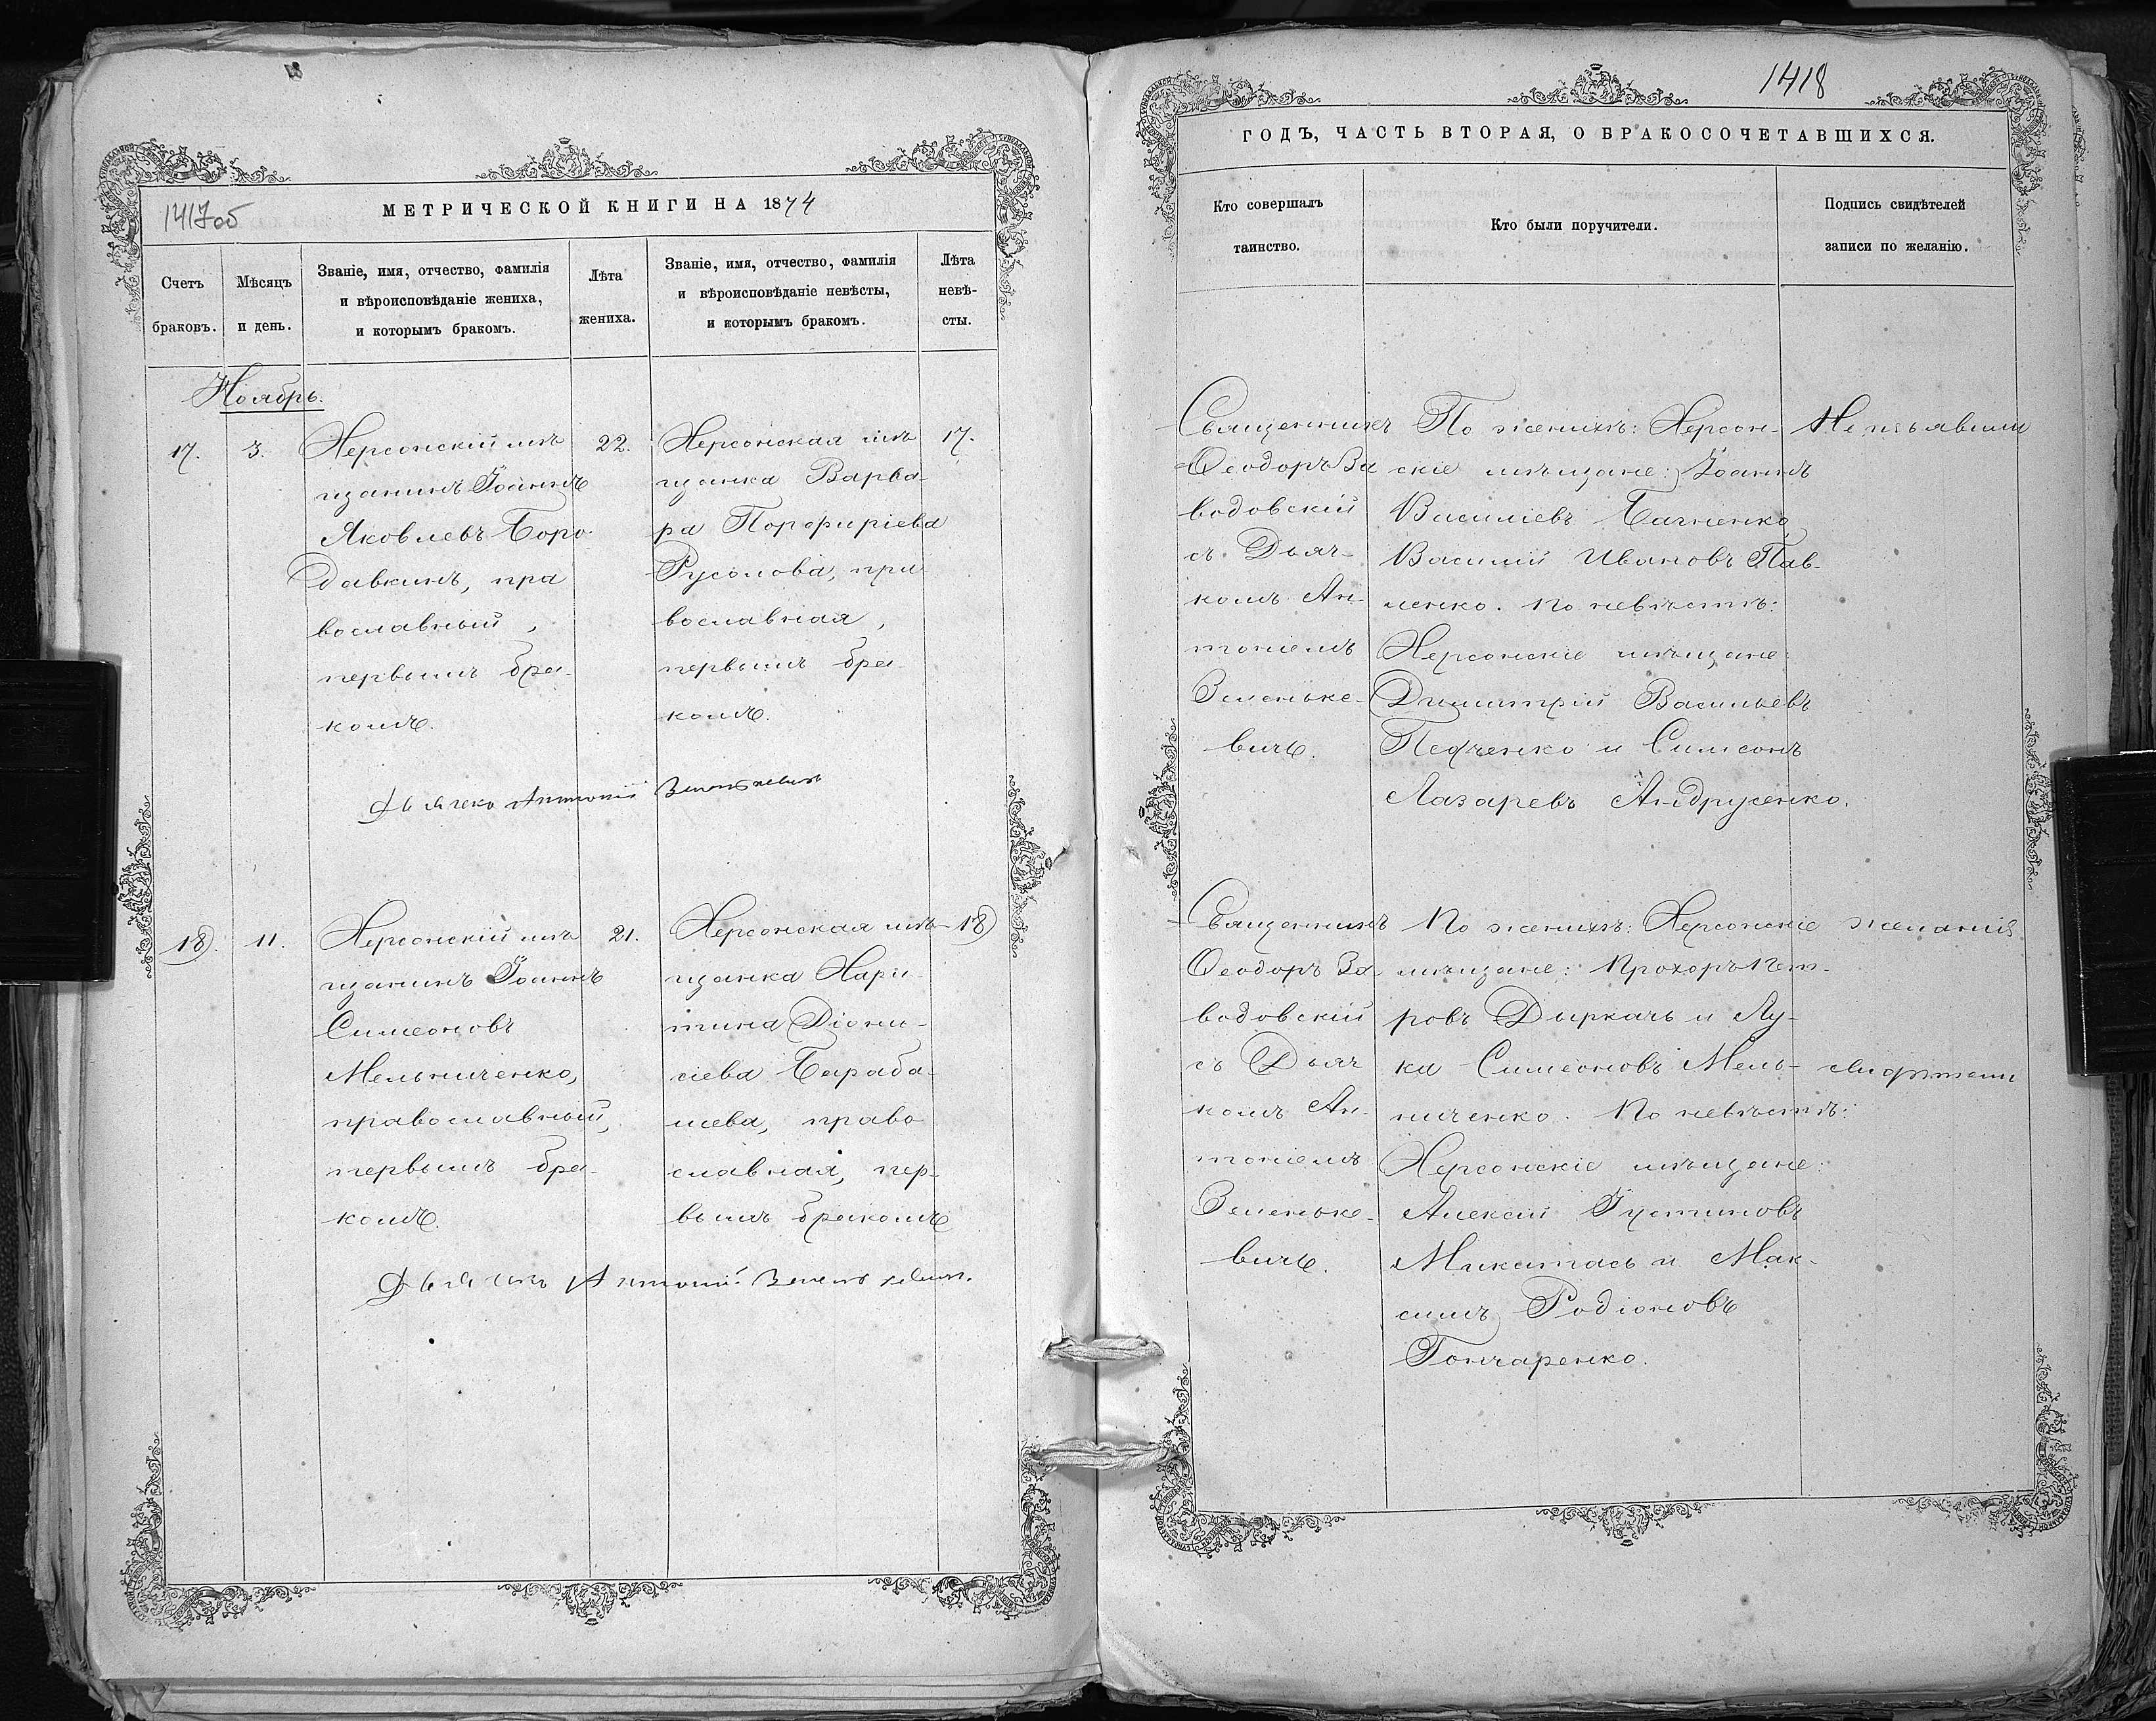 1417об
МЕТРИЧЕСКОЙ КНИГИ НА 1874
Счетъ
браковъ.
Мѣсяцъ
и день.
Званіе, имя, отчество, фамилія
и вѣроисповѣданіе жениха,
и которымъ бракомъ.
Лѣта
жениха.
Званіе, имя, отчество, фамилія
и вѣроисповѣданіе невѣсты,
и которымъ бракомъ.
Лѣта
невѣ-
сты.
Ноябрь.
17.
3.
Херсонскій мѣ
щанинъ Іоаннъ
Яковлевъ Боро-
давкинъ, пра
вославный,
первымъ бра-
комъ.
22.
Херсонская мѣ
щанка Варва-
ра Порфиріева
Русолова, пра
вославная,
первымъ бра-
комъ.
17.
Дьячекъ Антоній Зеленькевичъ
18.
11.
Херсонскій мѣ
щанинъ Іоаннъ
Симеоновъ
Мельниченко,
православный,
первымъ бра-
комъ.
21.
Херсонская мѣ-
щанка Хари
тина Діони-
сіева Бараба-
шева, право
славная, пер-
вымъ бракомъ
18
Дьячекъ Антоній Зеленькевичъ.
1418
ГОДЪ, ЧАСТЬ ВТОРАЯ, О БРАКОСОЧЕТАВШИХСЯ.
Кто совершалъ
таинство.
Кто были поручители.
Подпись свидѣтелей
записи по желанію.
Священникъ
Ѳеодоръ За
водовскій
съ Дьяч-
комъ Ан-
тоніемъ
Зеленьке-
вичъ.
По женихѣ: Херсон-
скіе мѣщане: Іоаннъ
Василіевъ
Василій Ивановъ Пав-
ленко. По невѣстѣ:
Херсонскіе мѣщане:
Димитрій Васильевъ
и Симеонъ
Лазаревъ Андрусенко.
Не изъявили
Священникъ
Ѳеодоръ За
водовскій
съ Дьяч
комъ Ан-
тоніемъ
Зеленьке-
вичъ.
По женихѣ: Херсонскіе
мѣщане: Прохоръ Пет-
ровъ Диркачъ и Лу-
ка Симеоновъ Мель-
ниченко. По невѣстѣ:
Херсонскіе мѣщане:
Алексій Іустиновъ
Микитась и Мак-
симъ Родіоновъ
Гончаренко.
желанія